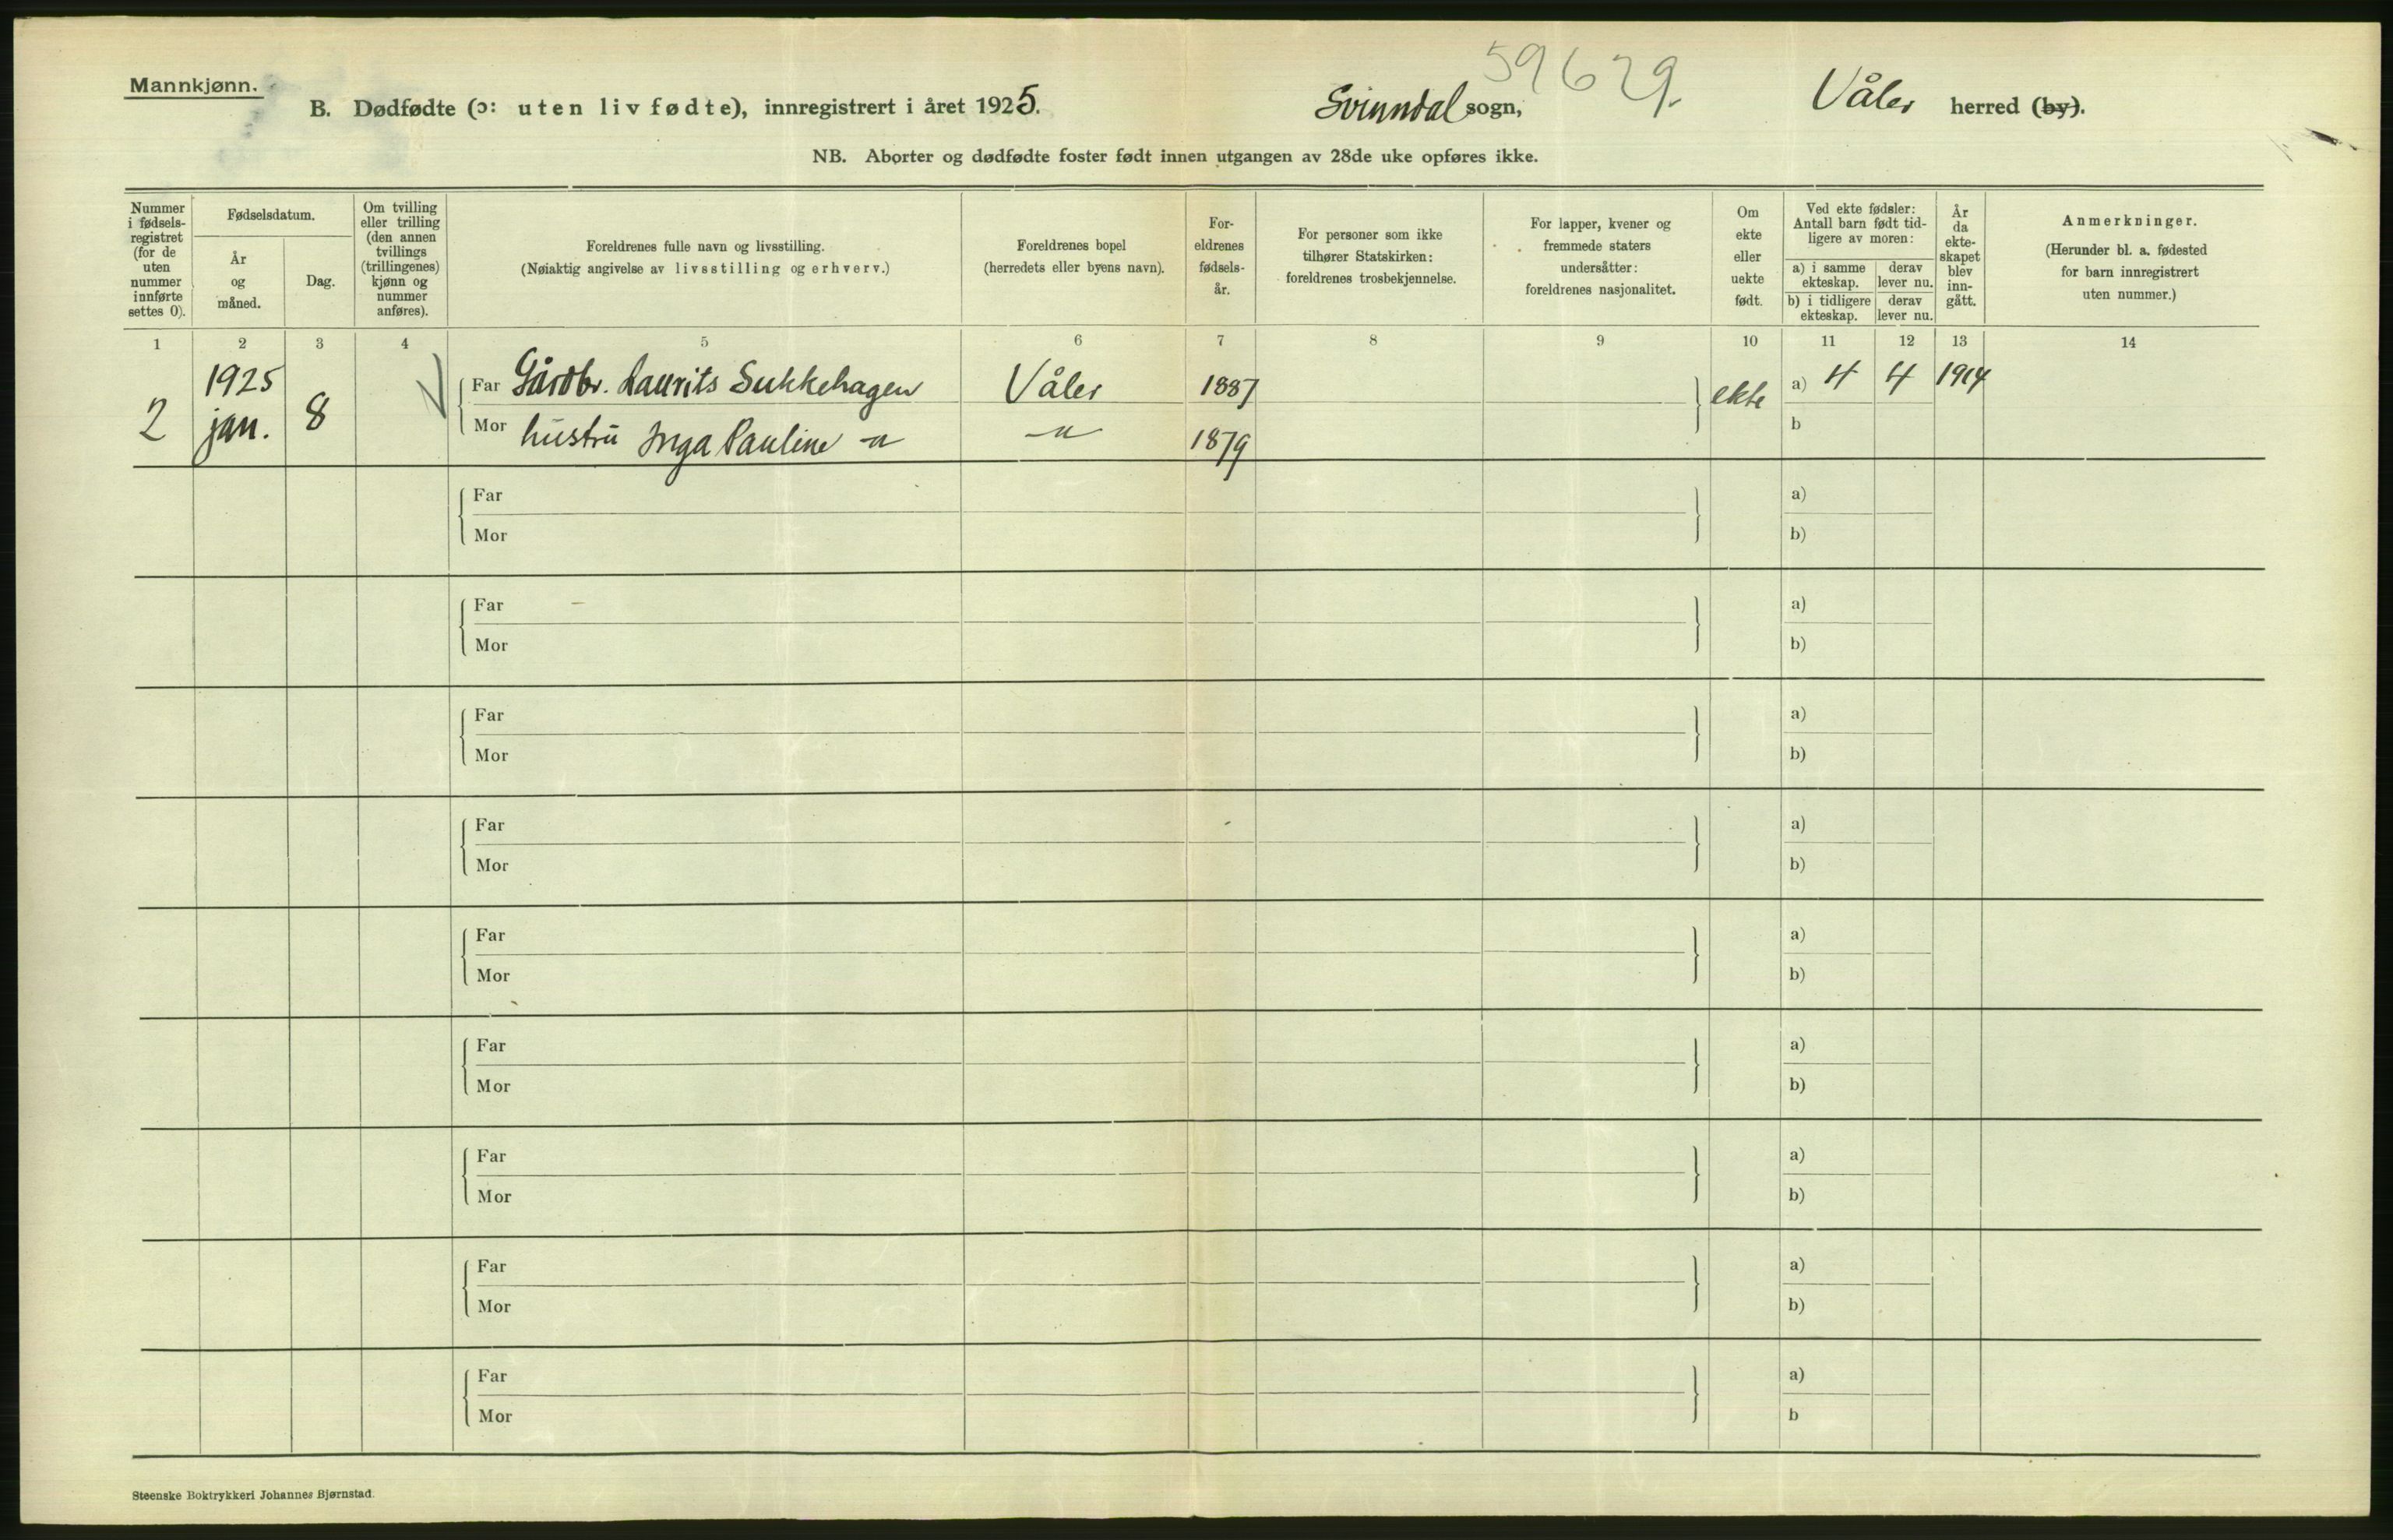 59629.
Mannkjønn.
B. Dødfødte (ɔ: uten liv fødte), innregistrert i året 1925. Svinndal sogn, Våler herred (by).
NB. Aborter og dødfødte foster født innen utgangen av 28de uke opføres ikke.
Nummer i fødselsregistret (for de uten nummer innførte settes 0).
Fødselsdatum.
År og måned.
Dag.
Om tvilling eller trilling (den annen tvillings (trillingenes) kjønn og nummer anføres).
Foreldrenes fulle navn og livsstilling.
(Nøiaktig angivelse av livsstilling og erhverv.)
Foreldrenes bopel
(herredets eller byens navn).
Foreldrenes fødselsår.
For personer som ikke tilhører Statskirken: foreldrenes trosbekjennelse.
For lapper, kvener og fremmede staters undersåtter: foreldrenes nasjonalitet.
Om ekte eller uekte født.
Ved ekte fødsler: Antall barn født tidligere av moren:
a) i samme ekteskap. derav lever nu.
b) i tidligere ekteskap. derav lever nu.
År da ekteskapet blev inngått.
Anmerkninger.
(Herunder bl. a. fødested for barn innregistrert uten nummer.)
1 2 3 4 5 6 7 8 9 10 11 12 13 14
2 1925 jan. 8 Far Gårdbr. Laurits Sukkehagen Våler 1887 ekte a) 4 4 1914
Mor hustru Inga Pauline -"- -"- 1879 b
Far a)
Mor b)
Far a)
Mor b)
Far a)
Mor b)
Far a)
Mor b)
Far a)
Mor b)
Far a)
Mor b)
Far a)
Mor b)
Far a)
Mor b)
Far a)
Mor b
Steenske Boktrykkeri Johannes Bjørnstad.